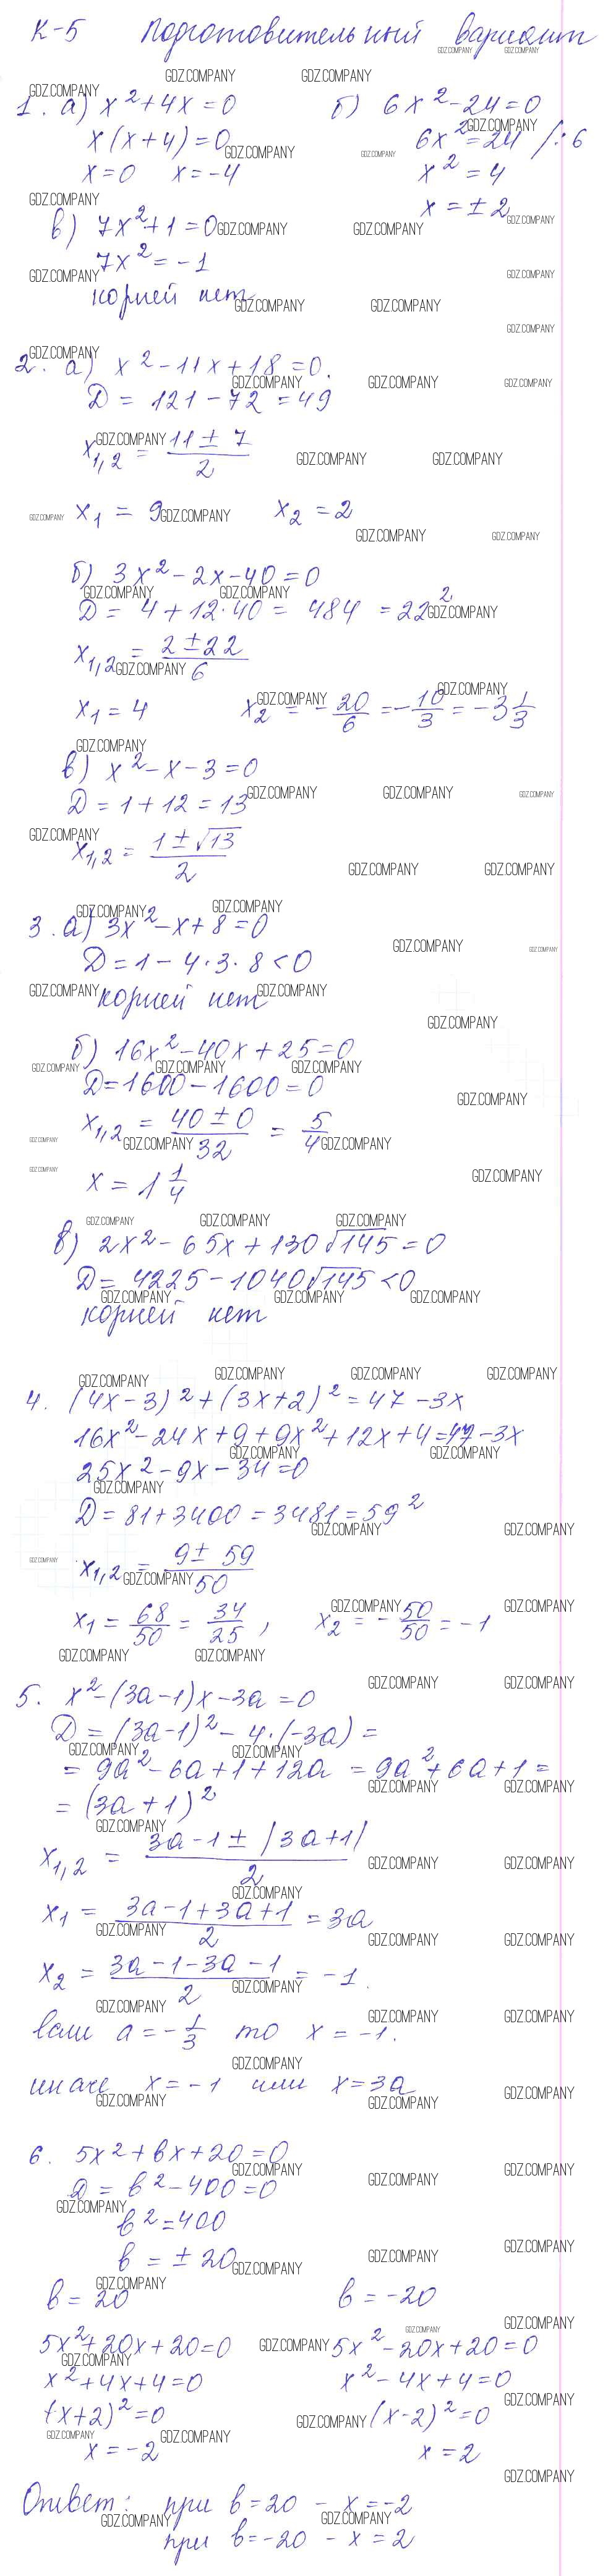 К-5 Подготовительный вариант
1. а) x²+4x=0 б) 6x²-24=0
x(x+4)=0 6x²=24 /:6
x=0 x=-4 x²=4
x=±2
в) 7x²+1=0
7x²=-1
корней нет
2. а) x²-11x+18=0.
D=121-72=49
x₁,₂ = (11±7)/2
x₁ = 9 x₂ = 2
б) 3x²-2x-40=0
D = 4+12·40 = 484 = 22²
x₁,₂ = (2±22)/6
x₁ = 4 x₂ = -20/6 = -10/3 = -3 1/3
в) x²-x-3=0
D=1+12=13
x₁,₂ = (1±√13)/2
3. а) 3x²-x+8=0
D=1-4·3·8<0
корней нет
б) 16x²-40x+25=0
D=1600-1600=0
x₁,₂ = (40±0)/32 = 5/4
x = 1 1/4
в) 2x²-65x+130√145=0
D=4225-1040√145<0
корней нет
4. (4x-3)²+(3x+2)²=47-3x
16x²-24x+9+9x²+12x+4=47-3x
25x²-9x-34=0
D=81+3400=3481=59²
x₁,₂ = (9±59)/50
x₁ = 68/50 = 34/25, x₂ = -50/50 = -1
5. x²-(3a-1)x-3a=0
D=(3a-1)²-4·(-3a)=
=9a²-6a+1+12a=9a²+6a+1=
=(3a+1)²
x₁,₂ = (3a-1±|3a+1|)/2
x₁ = (3a-1+3a+1)/2 = 3a
x₂ = (3a-1-3a-1)/2 = -1.
если a=-1/3 то x=-1.
иначе x=-1 или x=3a
6. 5x²+bx+20=0
D = b²-400=0
b²=400
b = ±20
b=20 b=-20
5x²+20x+20=0 5x²-20x+20=0
x²+4x+4=0 x²-4x+4=0
(x+2)²=0 (x-2)²=0
x=-2 x=2
Ответ: при b=20 - x=-2
при b=-20 - x=2
GDZ.COMPANY